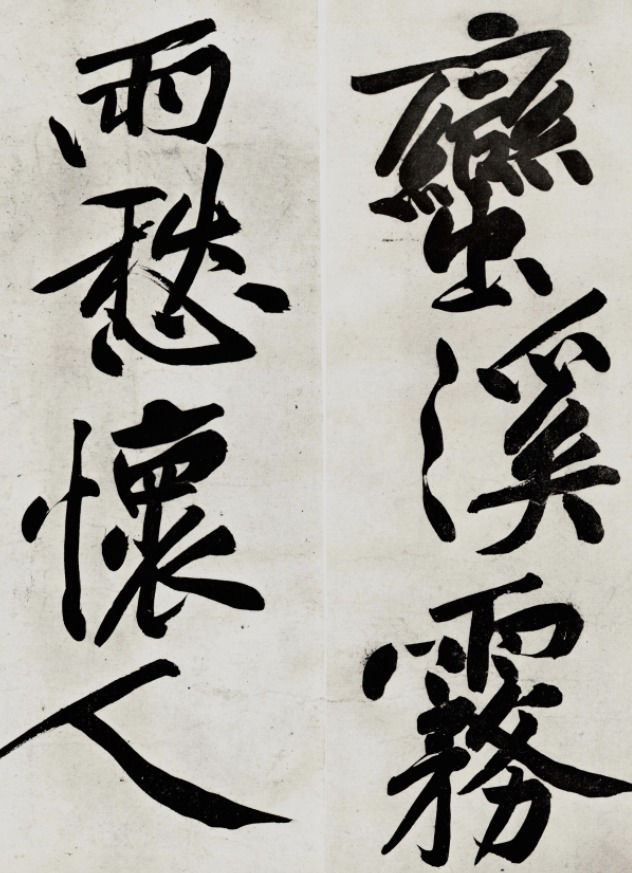 蠻溪霧
雨愁懷人